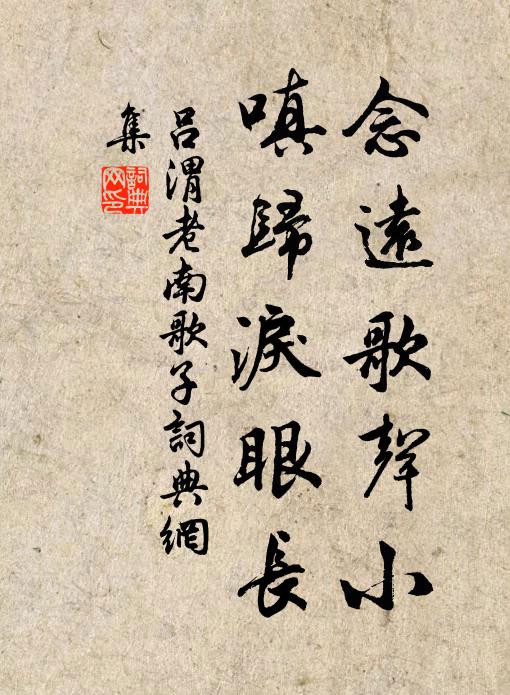 念遠歌聲小
嗔歸淚眼長
呂渭老南歌子詞典網
集
詞典網印